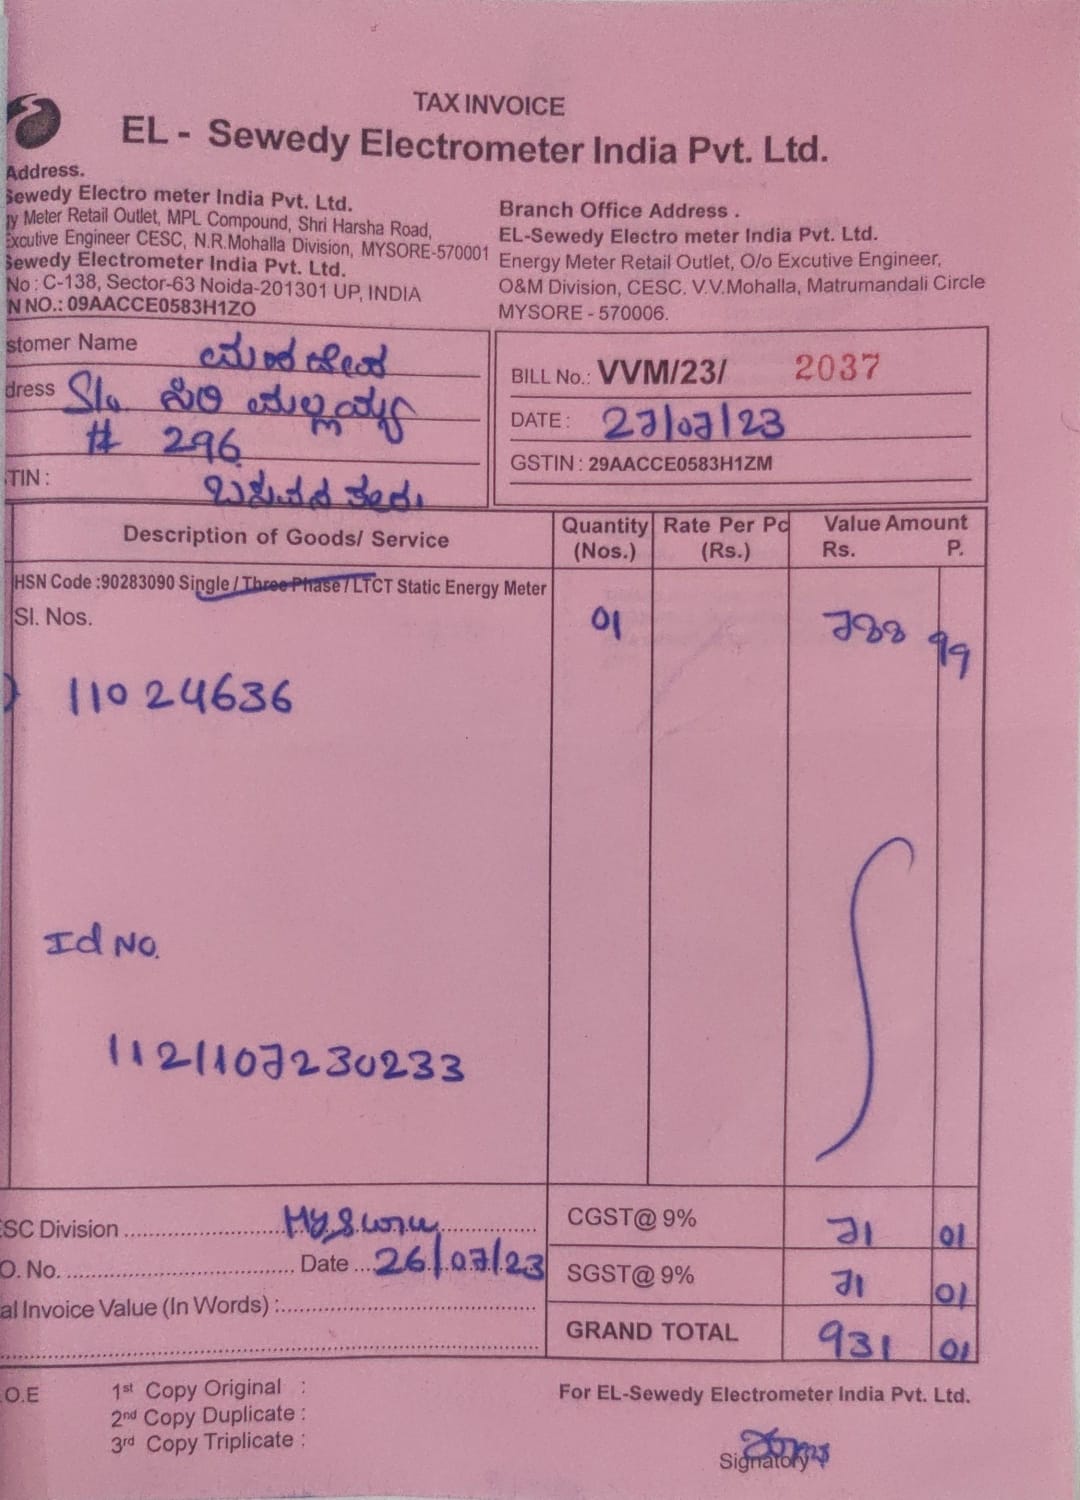 TAX INVOICE
EL - Sewedy Electrometer India Pvt. Ltd.
Address.
Sewedy Electro meter India Pvt. Ltd.
Meter Retail Outlet, MPL Compound, Shri Harsha Road,
Excutive Engineer CESC, N.R.Mohalla Division, MYSORE-570001
Sewedy Electrometer India Pvt. Ltd.
No : C-138, Sector-63 Noida-201301 UP, INDIA
N NO.: 09AACCE0583H1ZO
Branch Office Address .
EL-Sewedy Electro meter India Pvt. Ltd.
Energy Meter Retail Outlet, O/o Excutive Engineer,
O&M Division, CESC. V.V.Mohalla, Matrumandali Circle
MYSORE - 570006.
stomer Name
dress S/o ಮಲ್ಲಯ್ಯ
# 296
TIN :
BILL No.: VVM/23/ 2037
DATE : 27/07/23
GSTIN : 29AACCE0583H1ZM
Description of Goods/ Service Quantity (Nos.) Rate Per Pc (Rs.) Value Amount Rs. P.
HSN Code :90283090 Single / Three Phase / LTCT Static Energy Meter
Sl. Nos. 01 788 99
11024636
Id No.
1121107230233
SC Division Mysore CGST@ 9% 71 01
O. No. Date 26/07/23 SGST@ 9% 71 01
al Invoice Value (In Words) :
GRAND TOTAL 931 01
O.E
1st Copy Original :
2nd Copy Duplicate :
3rd Copy Triplicate :
For EL-Sewedy Electrometer India Pvt. Ltd.
Signatory